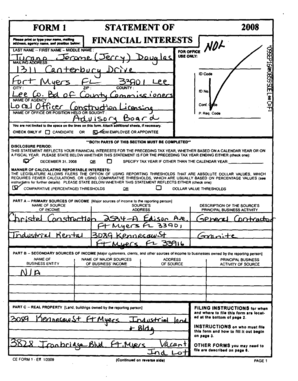 FORM 1 STATEMENT OF 2008
Please print or type your name, mailing address, agency name, and position below: FINANCIAL INTERESTS
LAST NAME -- FIRST NAME -- MIDDLE NAME FOR OFFICE USE ONLY:
Turano Jerome (Jerry) Douglas
MAILING ADDRESS
1311 Canterbury Drive
Fort Myers FL 33901 Lee
CITY ZIP COUNTY
Lee Co. Bd of County Commissioners
NAME OF AGENCY
Local Officer Construction Licensing
NAME OF OFFICE OR POSITION HELD OR SOUGHT
Advisory Board
ID Code
ID No.
Conf. Code
P. Req. Code
You are not limited to the space on the lines on this form. Attach additional sheets, if necessary.
CHECK ONLY IF CANDIDATE OR NEW EMPLOYEE OR APPOINTEE
**BOTH PARTS OF THIS SECTION MUST BE COMPLETED**
DISCLOSURE PERIOD:
THIS STATEMENT REFLECTS YOUR FINANCIAL INTERESTS FOR THE PRECEDING TAX YEAR, WHETHER BASED ON A CALENDAR YEAR OR ON
A FISCAL YEAR. PLEASE STATE BELOW WHETHER THIS STATEMENT IS FOR THE PRECEDING TAX YEAR ENDING EITHER (check one):
DECEMBER 31, 2008 OR SPECIFY TAX YEAR IF OTHER THAN THE CALENDAR YEAR:
MANNER OF CALCULATING REPORTABLE INTERESTS:
THE LEGISLATURE ALLOWS FILERS THE OPTION OF USING REPORTING THRESHOLDS THAT ARE ABSOLUTE DOLLAR VALUES, WHICH
REQUIRES FEWER CALCULATIONS, OR USING COMPARATIVE THRESHOLDS, WHICH ARE USUALLY BASED ON PERCENTAGE VALUES (see
instructions for further details). PLEASE STATE BELOW WHETHER THIS STATEMENT REFLECTS EITHER (check one):
COMPARATIVE (PERCENTAGE) THRESHOLDS OR DOLLAR VALUE THRESHOLDS
PART A -- PRIMARY SOURCES OF INCOME [Major sources of income to the reporting person]
NAME OF SOURCE OF INCOME SOURCE'S ADDRESS DESCRIPTION OF THE SOURCE'S PRINCIPAL BUSINESS ACTIVITY
Christal Construction 2534-A Edison Ave. General Contractor
Ft Myers FL 33901
Industrial Rental 3089 Kennesaw St Granite
Ft Myers FL 33916
PART B -- SECONDARY SOURCES OF INCOME [Major customers, clients, and other sources of income to businesses owned by the reporting person]
NAME OF BUSINESS ENTITY NAME OF MAJOR SOURCES OF BUSINESS' INCOME ADDRESS OF SOURCE PRINCIPAL BUSINESS ACTIVITY OF SOURCE
N/A
PART C -- REAL PROPERTY [Land, buildings owned by the reporting person]
3089 Kennesaw St Ft Myers Industrial land
+ Bldg
3828 Ironbridge Blvd Ft Myers Vacant
Ind Lot
FILING INSTRUCTIONS for when
and where to file this form are located
at the bottom of page 2.
INSTRUCTIONS on who must file
this form and how to fill it out begin
on page 3.
OTHER FORMS you may need to
file are described on page 6.
CE FORM 1 (Continued on reverse side) PAGE 1